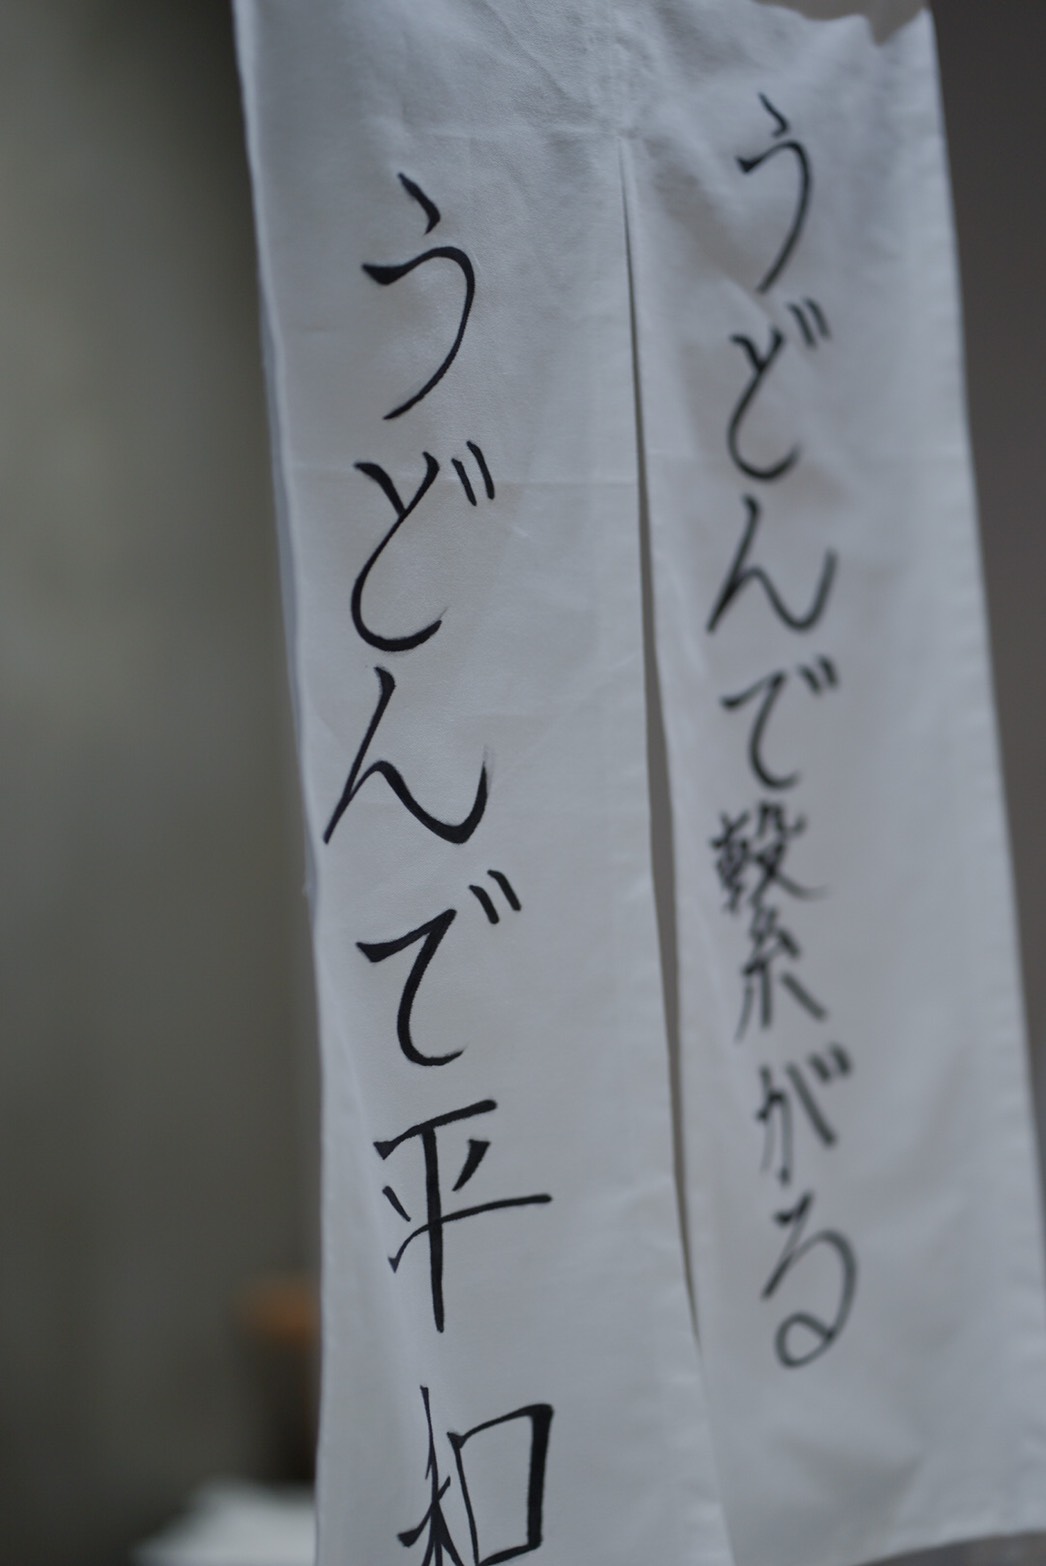 うどんで繋がる
うどんで平和